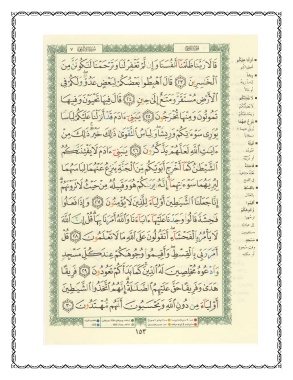 قَالَا رَبَّنَا ظَلَمْنَا أَنفُسَنَا وَإِن لَّمْ تَغْفِرْ لَنَا وَتَرْحَمْنَا لَنَكُونَنَّ مِنَ
ٱلْخَٰسِرِينَ ٢٣ قَالَ ٱهْبِطُوا۟ بَعْضُكُمْ لِبَعْضٍ عَدُوٌّ وَلَكُمْ فِى
ٱلْأَرْضِ مُسْتَقَرٌّ وَمَتَٰعٌ إِلَىٰ حِينٍ ٢٤ قَالَ فِيهَا تَحْيَوْنَ وَفِيهَا
تَمُوتُونَ وَمِنْهَا تُخْرَجُونَ ٢٥ يَٰبَنِىٓ ءَادَمَ قَدْ أَنزَلْنَا عَلَيْكُمْ لِبَاسًا
يُوَٰرِى سَوْءَٰتِكُمْ وَرِيشًا وَلِبَاسُ ٱلتَّقْوَىٰ ذَٰلِكَ خَيْرٌ ذَٰلِكَ مِنْ
ءَايَٰتِ ٱللَّهِ لَعَلَّهُمْ يَذَّكَّرُونَ ٢٦ يَٰبَنِىٓ ءَادَمَ لَا يَفْتِنَنَّكُمُ
ٱلشَّيْطَٰنُ كَمَآ أَخْرَجَ أَبَوَيْكُم مِّنَ ٱلْجَنَّةِ يَنزِعُ عَنْهُمَا لِبَاسَهُمَا
لِيُرِيَهُمَا سَوْءَٰتِهِمَآ إِنَّهُۥ يَرَىٰكُمْ هُوَ وَقَبِيلُهُۥ مِنْ حَيْثُ لَا تَرَوْنَهُمْ
إِنَّا جَعَلْنَا ٱلشَّيَٰطِينَ أَوْلِيَآءَ لِلَّذِينَ لَا يُؤْمِنُونَ ٢٧ وَإِذَا فَعَلُوا۟
فَٰحِشَةً قَالُوا۟ وَجَدْنَا عَلَيْهَآ ءَابَآءَنَا وَٱللَّهُ أَمَرَنَا بِهَا قُلْ إِنَّ ٱللَّهَ
لَا يَأْمُرُ بِٱلْفَحْشَآءِ أَتَقُولُونَ عَلَى ٱللَّهِ مَا لَا تَعْلَمُونَ ٢٨ قُلْ
أَمَرَ رَبِّى بِٱلْقِسْطِ وَأَقِيمُوا۟ وُجُوهَكُمْ عِندَ كُلِّ مَسْجِدٍ
وَٱدْعُوهُ مُخْلِصِينَ لَهُ ٱلدِّينَ كَمَا بَدَأَكُمْ تَعُودُونَ ٢٩ فَرِيقًا
هَدَىٰ وَفَرِيقًا حَقَّ عَلَيْهِمُ ٱلضَّلَٰلَةُ إِنَّهُمُ ٱتَّخَذُوا۟ ٱلشَّيَٰطِينَ
أَوْلِيَآءَ مِن دُونِ ٱللَّهِ وَيَحْسَبُونَ أَنَّهُم مُّهْتَدُونَ ٣٠
١٥٣